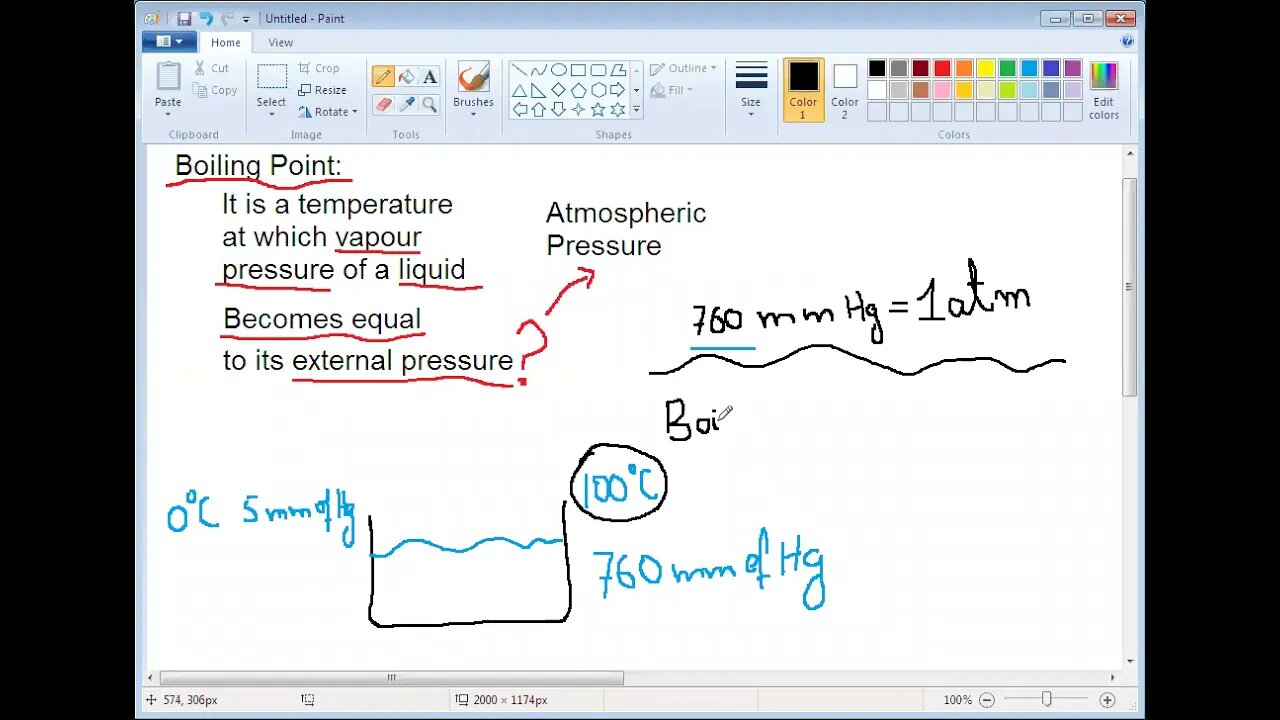 Untitled - Paint
Home
View
Paste
Cut
Copy
Clipboard
Select
Crop
Resize
Rotate
Image
A
Tools
Brushes
Shapes
Outline
Fill
Size
Color
1
Color
2
Colors
Edit
colors
Boiling Point:
It is a temperature
at which vapour
pressure of a liquid
Becomes equal
to its external pressure ?
Atmospheric
Pressure
760 mm Hg = 1 atm
Boi
0°C 5 mm of Hg
100°C
760 mm of Hg
574, 306px
2000 × 1174px
100%